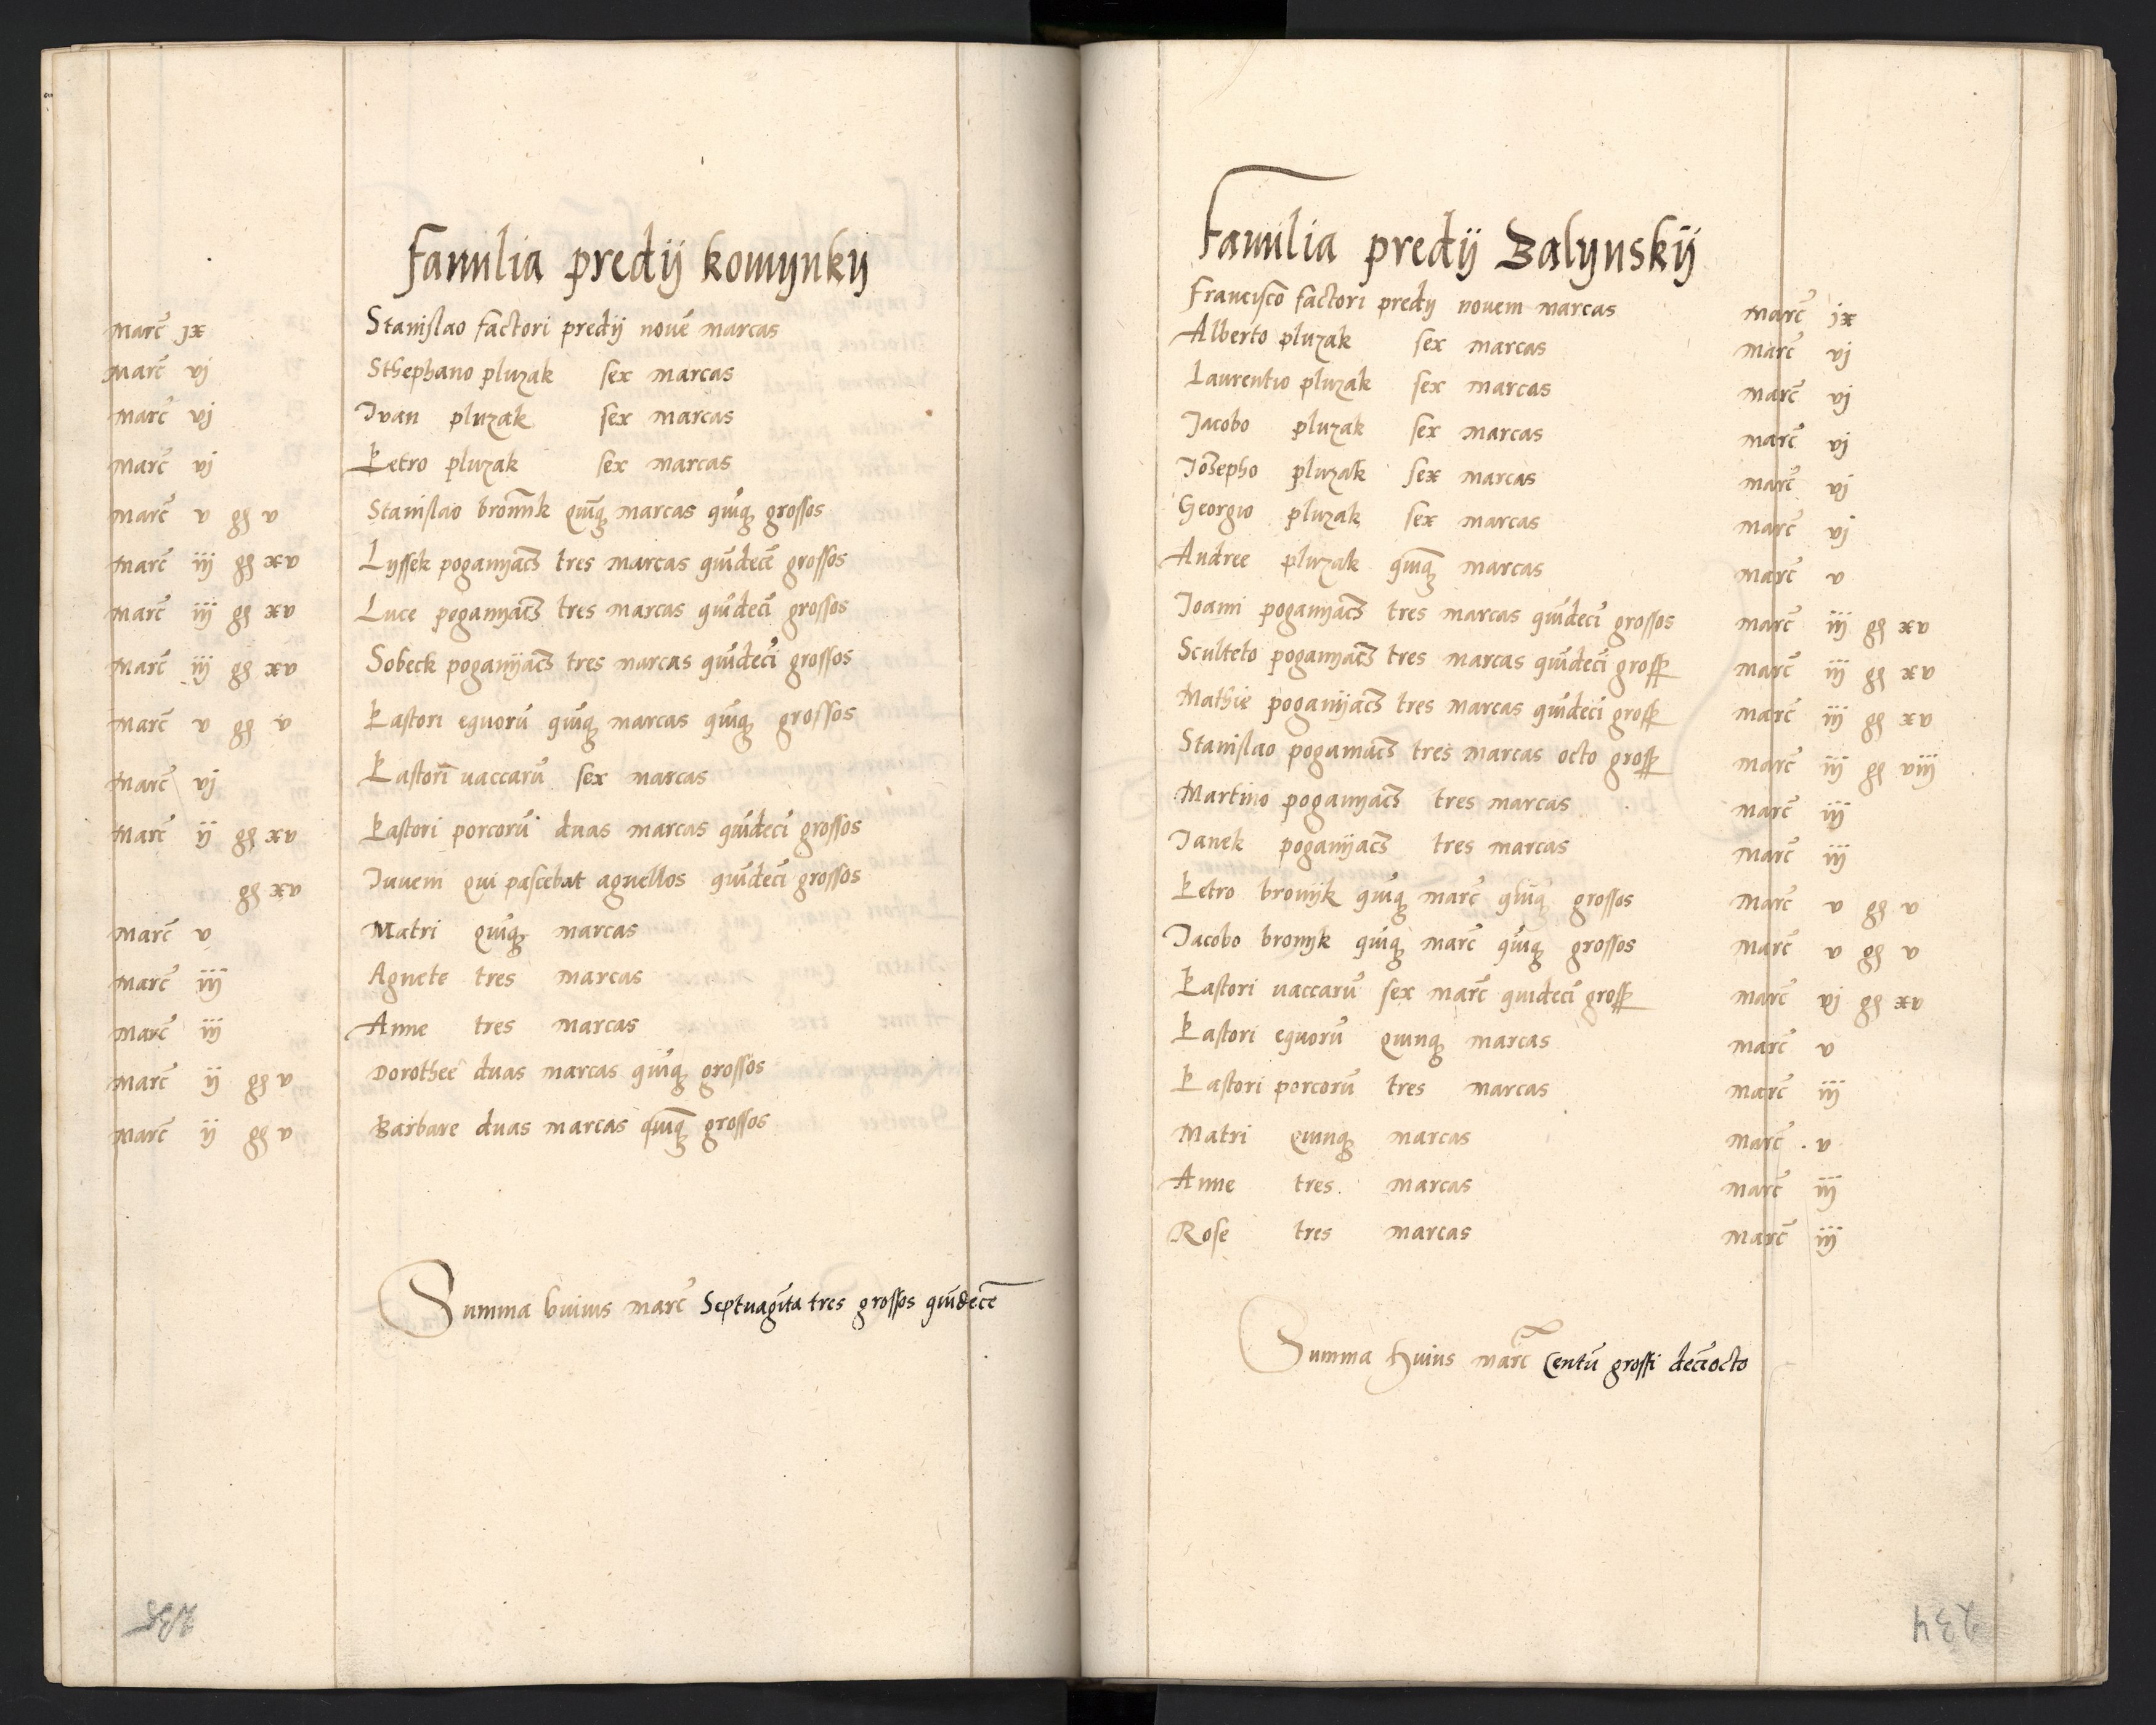 Familia predij komynky
Marc̄ jx Stanislao factori predij novē marcas
Marc̄ vj Sthephano pluzak sex marcas
Marc̄ vj Ivan pluzak sex marcas
Marc̄ vj Petro pluzak sex marcas
Marc̄ v gg v Stanislao bronnik quīqȝ marcas quīqȝ grossos
Marc̄ iij gg xv Lyssek poganyacȝ tres marcas quīdecē grossos
Marc̄ iij gg xv Luce poganyacȝ tres marcas quīdecī grossos
Marc̄ iij gg xv Sobeck poganyacȝ tres marcas quīdecī grossos
Marc̄ v gg v Pastori equorū quīqȝ marcas quīqȝ grossos
Marc̄ vj Pastori vaccarū sex marcas
Marc̄ ij gg xv Pastori porcorū duas marcas quīdecī grossos
gg xv Iuveni qui pascebat agnellos quīdecī grossos
Marc̄ v Matri quīqȝ marcas
Marc̄ iij Agnete tres marcas
Marc̄ iij Anne tres marcas
Marc̄ ij gg v Dorothee duas marcas quīqȝ grossos
Marc̄ ij gg v Barbare duas marcas quīqȝ grossos
Summa huius marc̄ Septuagīta tres grossos quīdecē
235
Familia predij Zalynskij
Francisco factori predij novem marcas Marc̄ jx
Alberto pluzak sex marcas Marc̄ vj
Laurentio pluzak sex marcas Marc̄ vj
Jacobo pluzak sex marcas Marc̄ vj
Josepho pluzak sex marcas Marc̄ vj
Georgio pluzak sex marcas Marc̄ vj
Andree pluzak quīqȝ marcas Marc̄ v
Joanni poganyacȝ tres marcas quīdecī grossos Marc̄ iij gg xv
Sculteto poganyacȝ tres marcas quīdecī gross Marc̄ iij gg xv
Mathie poganyacȝ tres marcas quīdecī gross Marc̄ iij gg xv
Stanislao poganiacȝ tres marcas octo gross Marc̄ iij gg viij
Martino poganyacȝ tres marcas Marc̄ iij
Janek poganyacȝ tres marcas Marc̄ iij
Petro bronyk quīqȝ marc̄ quīqȝ grossos Marc̄ v gg v
Jacobo bronyk quīqȝ marc̄ quīqȝ grossos Marc̄ v gg v
Pastori vaccarū sex marc̄ quīdecī gross Marc̄ vj gg xv
Pastori equorū quinqȝ marcas Marc̄ v
Pastori porcorū tres marcas Marc̄ iij
Matri quinqȝ marcas Marc̄ v
Anne tres marcas Marc̄ iij
Rose tres marcas Marc̄ iij
Summa huius marc̄ Centū grossi decēocto
234